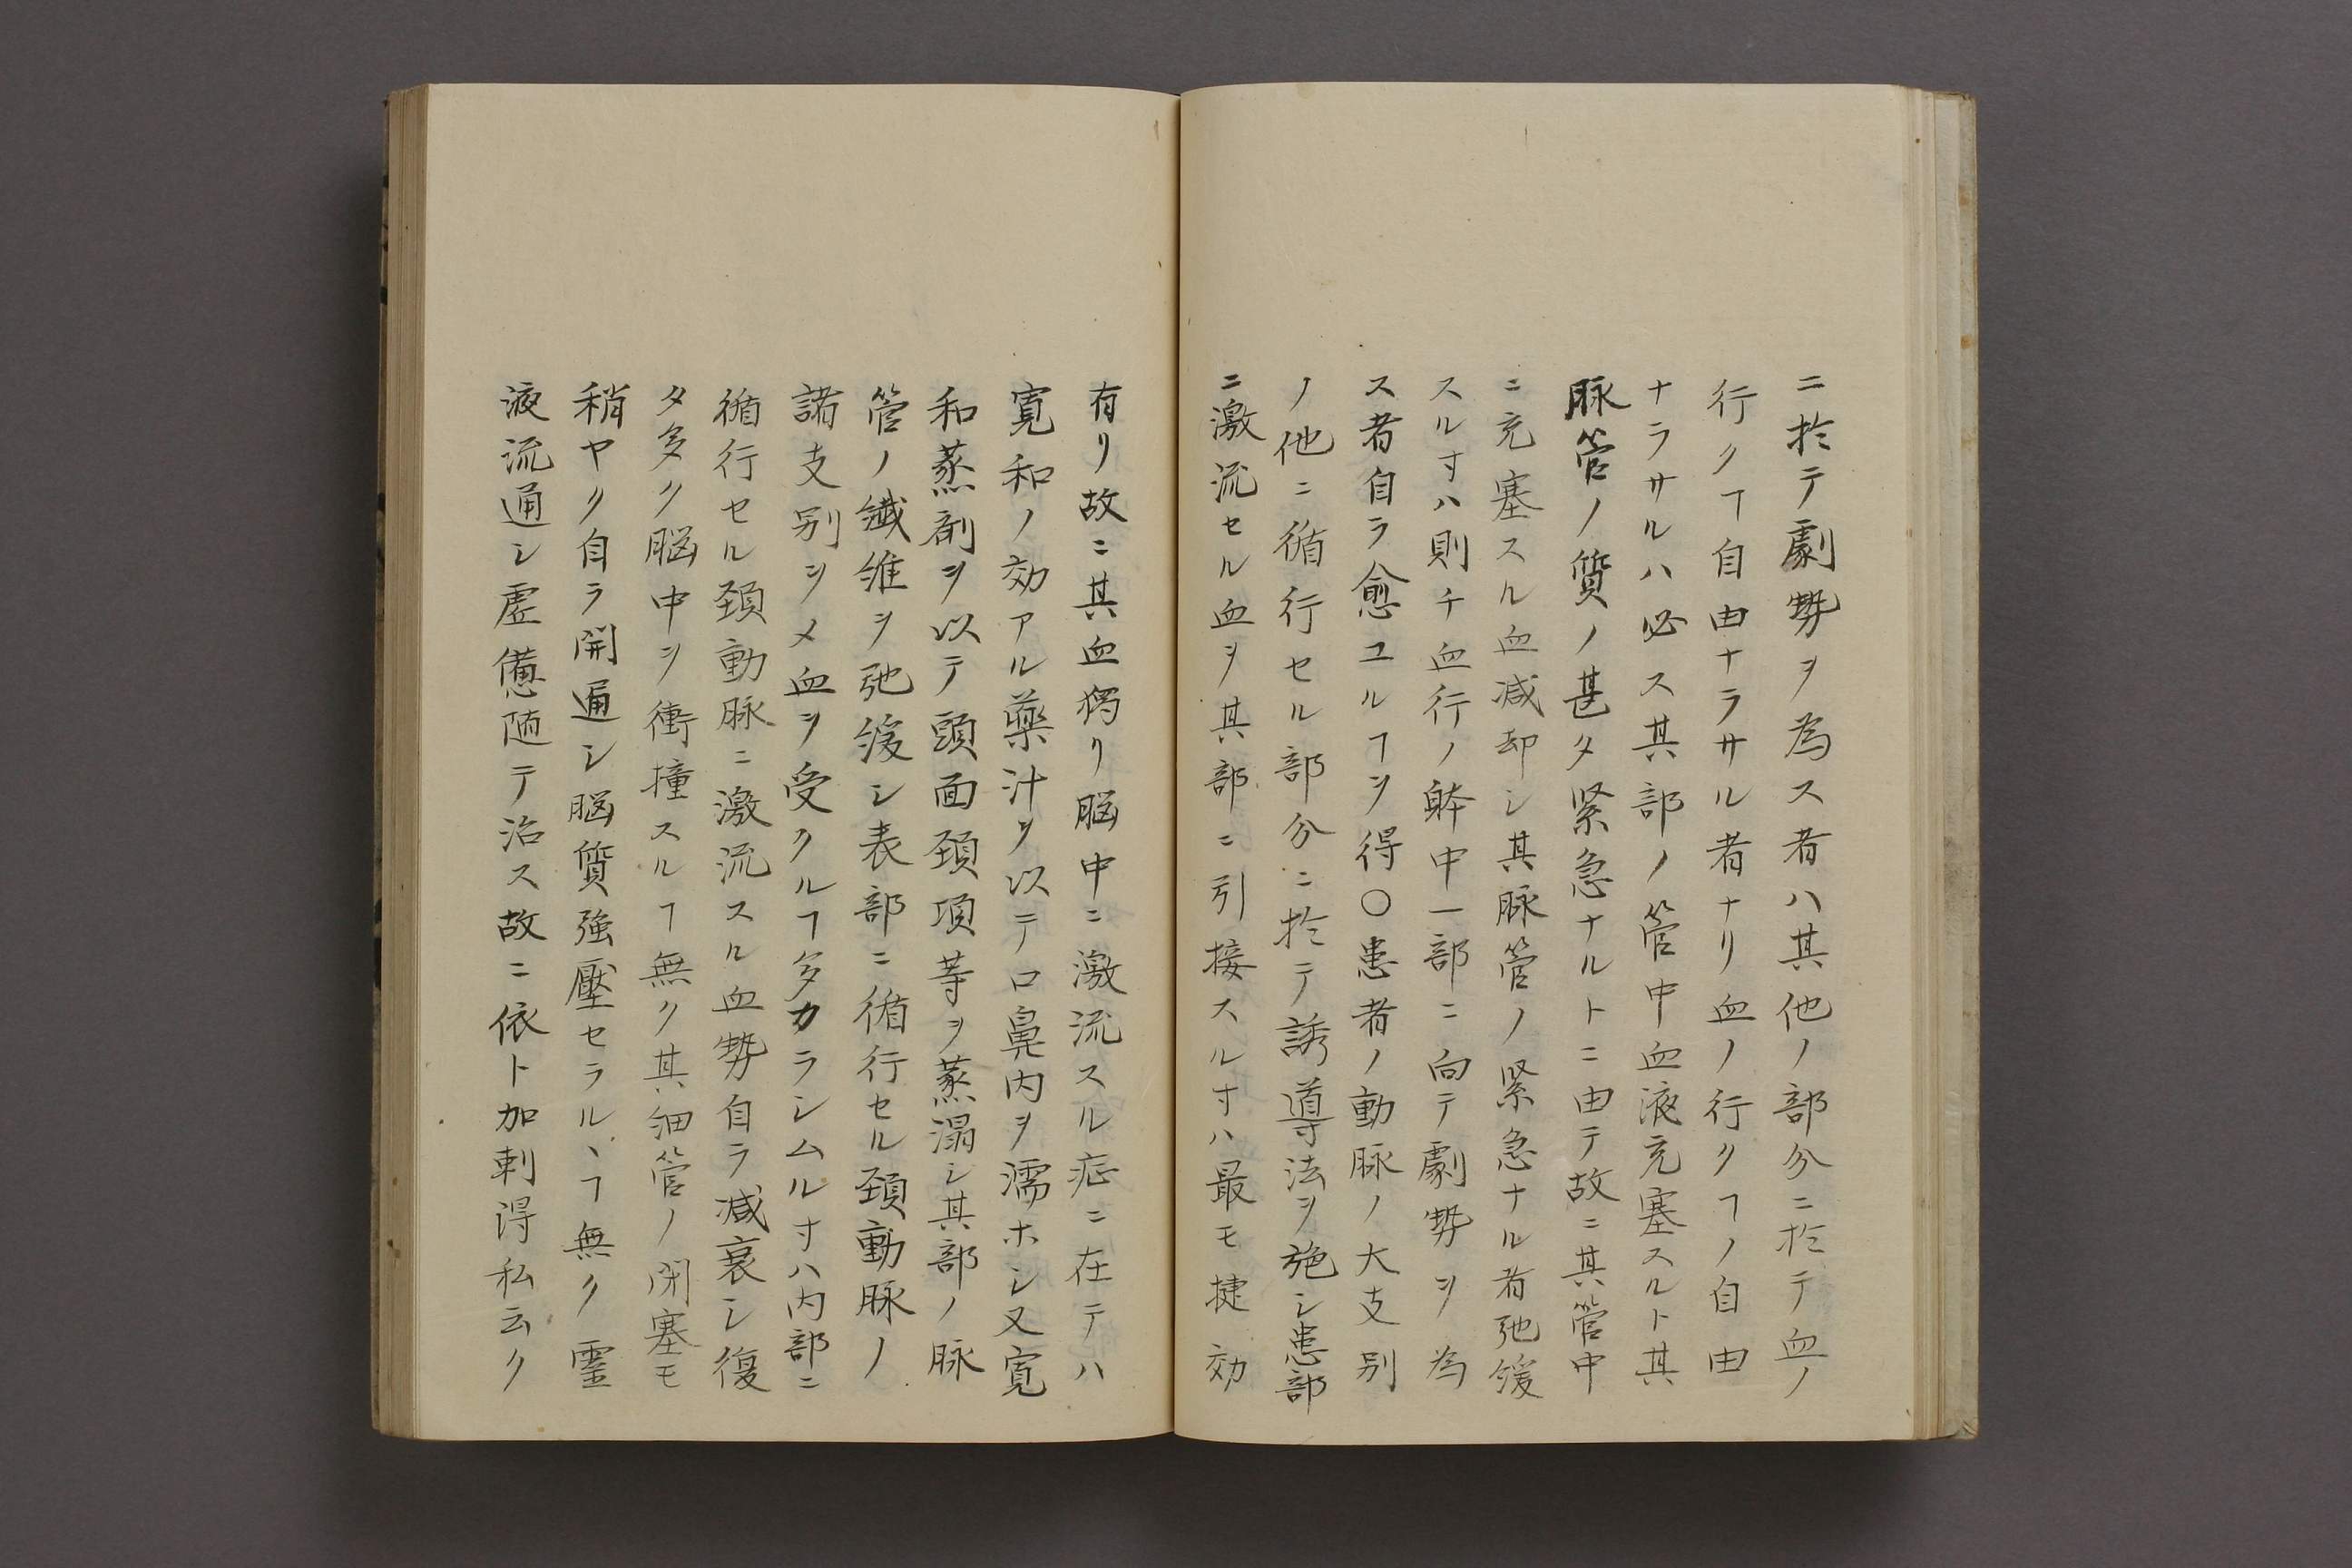 ニ於テ劇勢ヲ為ス者ハ其他ノ部分ニ於テ血ノ
行クヿ自由ナラサル者ナリ血ノ行クヿノ自由
ナラサルハ必ス其部ノ管中血液充塞スルト其
脉管ノ質ノ甚タ緊急ナルトニ由テ故ニ其管中
ニ充塞スル血减却シ其脉管ノ緊急ナル者弛緩
スル寸ハ則チ血行ノ躰中一部ニ向テ劇勢ヲ為
ス者自ラ愈ユルヿヲ得〇患者ノ動脉ノ大支别
ノ他ニ循行セル部分ニ於テ誘導法ヲ施シ患部
ニ激流セル血ヲ其部ニ引接スル寸ハ最モ捷効
有リ故ニ其血獨リ脳中ニ激流スル症ニ在テハ
寛和ノ効アル藥汁ヲ以テ口鼻内ヲ濡ホシ又寛
和蒸剤ヲ以テ頭面頚項等ヲ蒸溻シ其部ノ脉
管ノ纎維ヲ弛緩シ表部ニ循行セル頚動脉ノ
諸支别ヲメ血ヲ受クルヿ多カラシムル寸ハ内部ニ
循行セル頚動脉ニ激流スル血勢自ラ减衰シ復
タ多ク脳中ヲ衝撞スルヿ無ク其細管ノ閉塞モ
稍ヤク自ラ開通シ脳質強壓セラルヽヿ無ク霊
液流通シ虚憊随テ治ス故ニ依ト加剌得私云ク